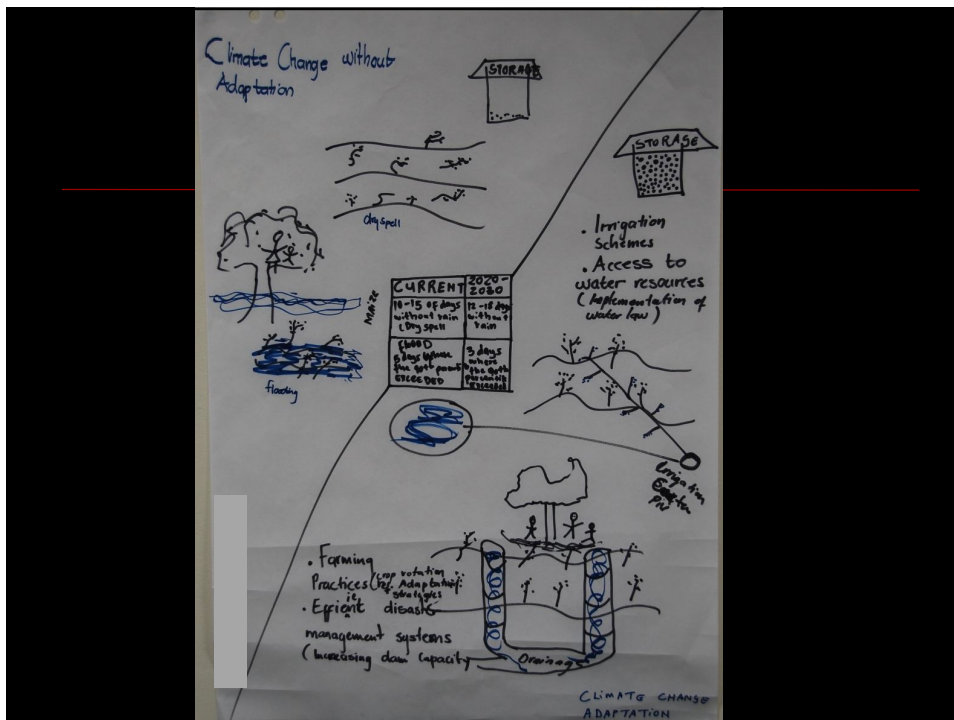 Climate Change without
Adaptation
STORAGE
Dry spell
flooding
MAIZE
CURRENT
2020-
2030
10-15 of days
without rain
(Dry spell
12-18 days
without
rain
FLOOD
5 days
EXCEEDED
3 days
where
the
exceeded
STORAGE
. Irrigation
Schemes
. Access to
water resources
(Implementation of
water law)
Irrigation
. Farming
Practices (crop rotation
Adaptation
strategies
ie
. Effient disaster
management systems
(Increasing dam capacity)
Drainage
CLIMATE CHANGE
ADAPTATION